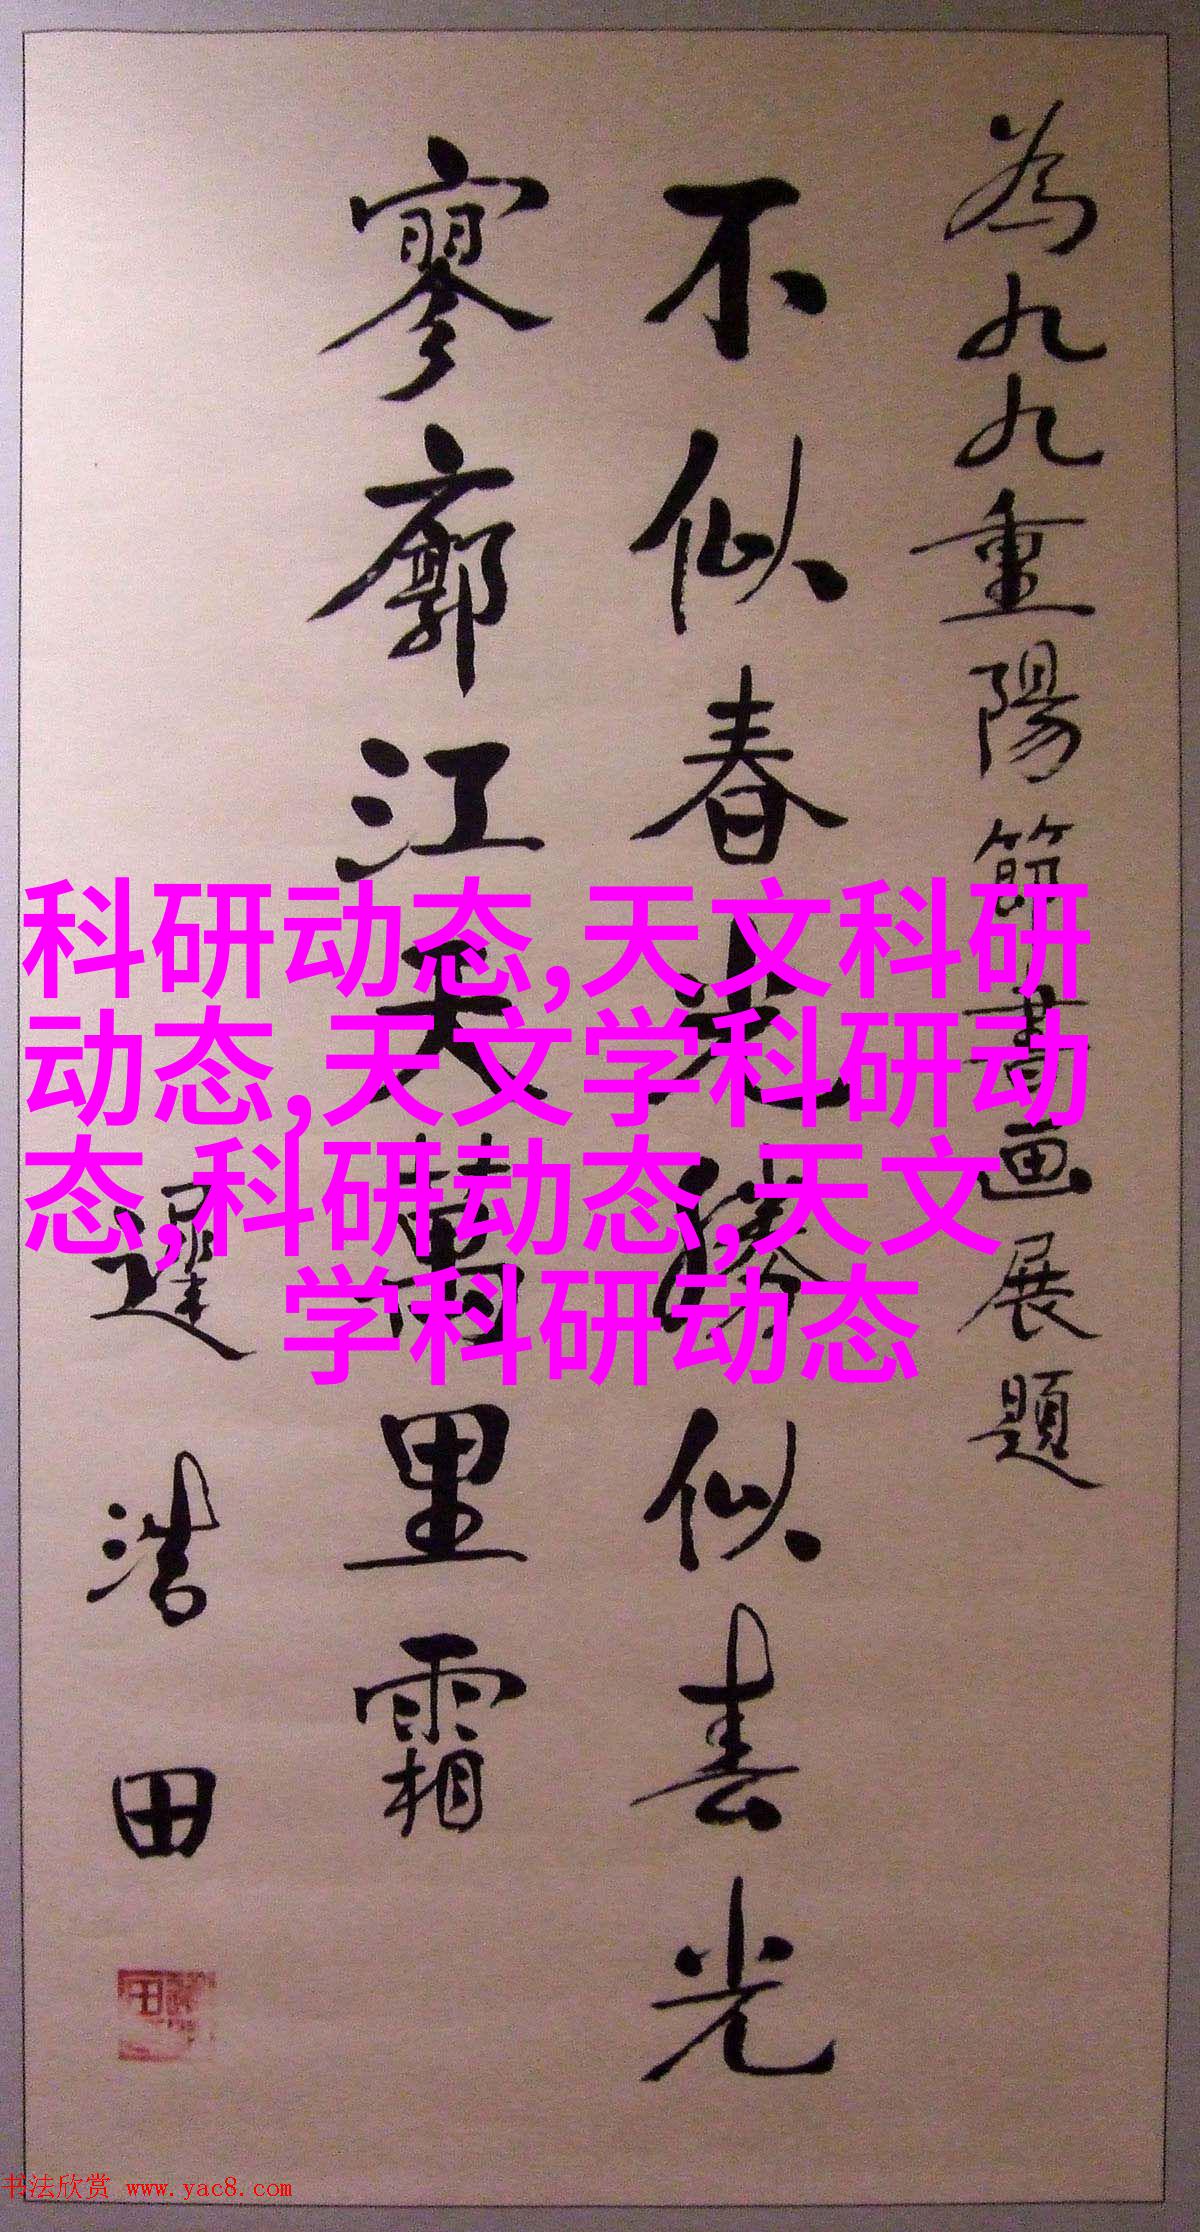 為九九重陽節書画展題
不似春光勝似春光
寥廓江天萬里霜
遲浩田
科研动态,天文科研
动态,天文学科研动
态,科研动态,天文
学科研动态
书法欣赏 www.yac8.com